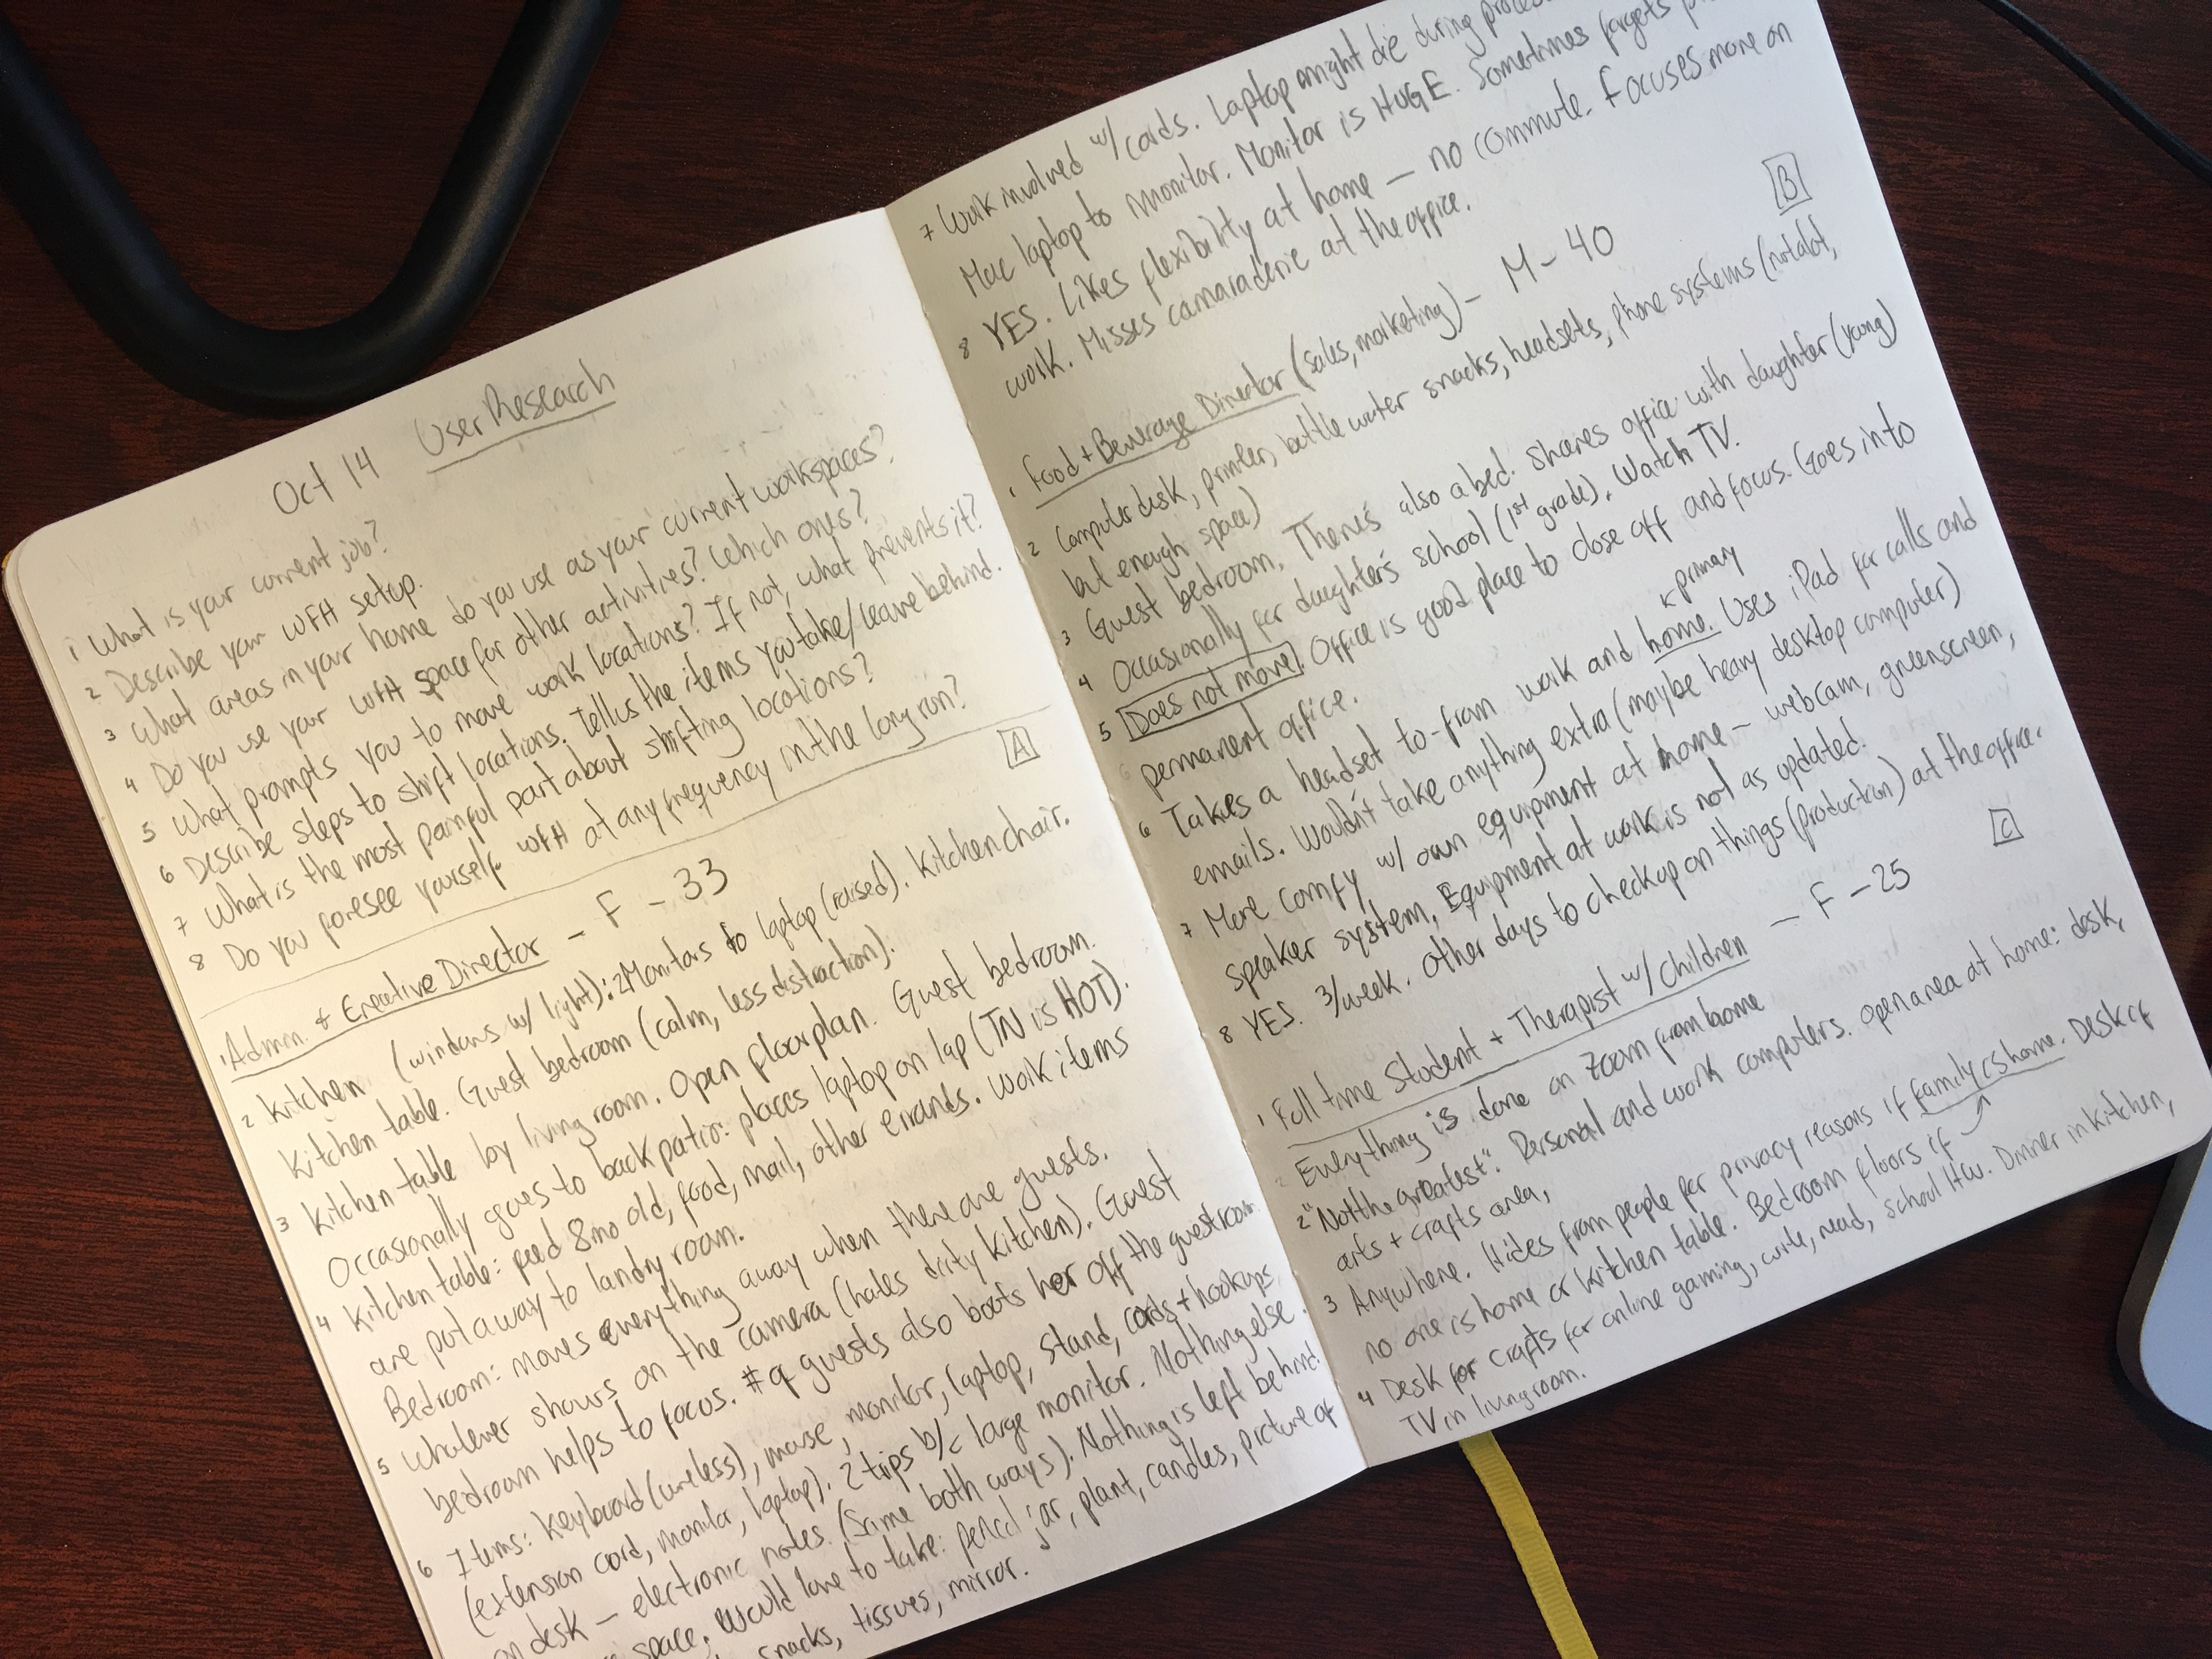 Oct 14 User Research
1 What is your current job?
2 Describe your WFH setup.
3 What areas in your home do you use as your current workspaces?
4 Do you use your WFH space for other activities? Which ones?
5 What prompts you to move work locations? If not, what prevents it?
6 Describe steps to shift locations. Tell us the items you take/leave behind.
7 What is the most painful part about shifting locations?
8 Do you foresee yourself WFH at any frequency in the long run?
A
1 Admin. & Creative Director - F - 33
2 Kitchen (windows w/ light): 2 Monitors to laptop (raised). Kitchen chair.
Kitchen table. Guest bedroom (calm, less distraction).
3 Kitchen table by living room. Open floorplan. Guest bedroom.
Occasionally goes to back patio: places laptop on lap (TN is HOT).
4 Kitchen table: feed 8mo old, food, mail, other errands. Work items
are put away to landry room.
Bedroom: moves everything away when there are guests.
5 Whatever shows on the camera (hates dirty kitchen). Guest
bedroom helps to focus. # of guests also boots her off the guestroom
6 Items: Keyboard (wireless), mouse, monitor, laptop, stand, cords + hookups
(extension cord, monitor, laptop). 2 trips b/c large monitor. Nothing else
on desk - electronic notes. (Same both ways). Nothing is left behind
space. Would love to take: pencil jar, plant, candles, picture of
snacks, tissues, mirror.
7 Work involved w/ cords. Laptop might die during
Mac laptop to monitor. Monitor is HUGE. Sometimes forgets
8 YES. Likes flexibility at home - no commute. Focuses more on
work. Misses camaraderie at the office.
B
1 Food + Beverage Director (sales, marketing) - M - 40
2 Computer desk, printer, bottle water snacks, headsets, phone systems (not alot,
but enough space)
3 Guest bedroom. There's also a bed. Shares office with daughter (young)
4 Occasionally for daughter's school (1st grade). Watch TV.
5 Does not move. Office is good place to close off and focus. Goes into
permanent office.
primary
6 Takes a headset to-from work and home. Uses iPad for calls and
emails. Wouldn't take anything extra (maybe heavy desktop computer)
7 More comfy w/ own equipment at home - webcam, greenscreen,
speaker system, Equipment at work is not as updated.
8 YES. 3/week. Other days to checkup on things (production) at the office.
C
1 Full time Student + Therapist w/ Children - F - 25
2 Everything is done on Zoom from home
2 "Not the greatest". Personal and work computers. Open area at home: desk,
arts + crafts area,
3 Anywhere. Hides from people for privacy reasons if family is home. Desk if
no one is home or kitchen table. Bedroom floors if
4 Desk for crafts for online gaming, write, read, school HW. Dinner in kitchen,
TV in living room.